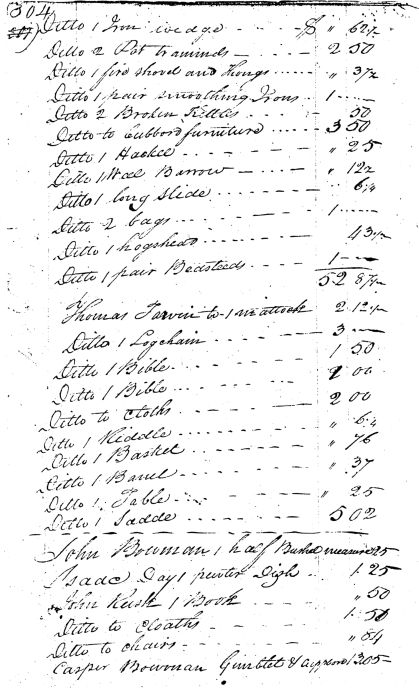 304
Ditto 1 Iron wedge - - - - $ " 62½
Ditto 2 Pot traminds - - - 2 50
Ditto 1 fire shovel and thongs - - - - " 37½
Ditto 1 pair smoothing Irons - - 1 - - -
Ditto 2 Broken Kettles - - - - 50
Ditto to Cubbord furniture - - - - 3 50
Ditto 1 Hackel - - - - " 25
Ditto 1 Barrow - - - - " 12½
Ditto 1 long slide - - - - 6¼
Ditto 2 bags - - - - 1 - - -
Ditto 1 hogshead - - - - 43¾
Ditto 1 pair Beasteeds - - - - 1 - - -
52 87½
Thomas Tarvin to 1 mattock 2 12½
Ditto 1 Logchain - - - - 3 - -
Ditto 1 Bible - - - - 1 50
Ditto 1 Bible - - - - 2 00
Ditto to cloths - - - - 2 00
Ditto 1 Riddle - - - - " 6¼
Ditto 1 Basket - - - - " 76
Ditto 1 Barrel - - - - " 37
Ditto 1 Table - - - - " 25
Ditto 1 Sadde - - - - 5 02
John Bowman 1 half Bushel measure 25
Isaac Day 1 pewter Dish - - 1 25
John Rush 1 Book - - - - " 50
Ditto to cloaths - - - - 1 50
Ditto to chairs - - - - " 54
Casper Bowman Gimblet &